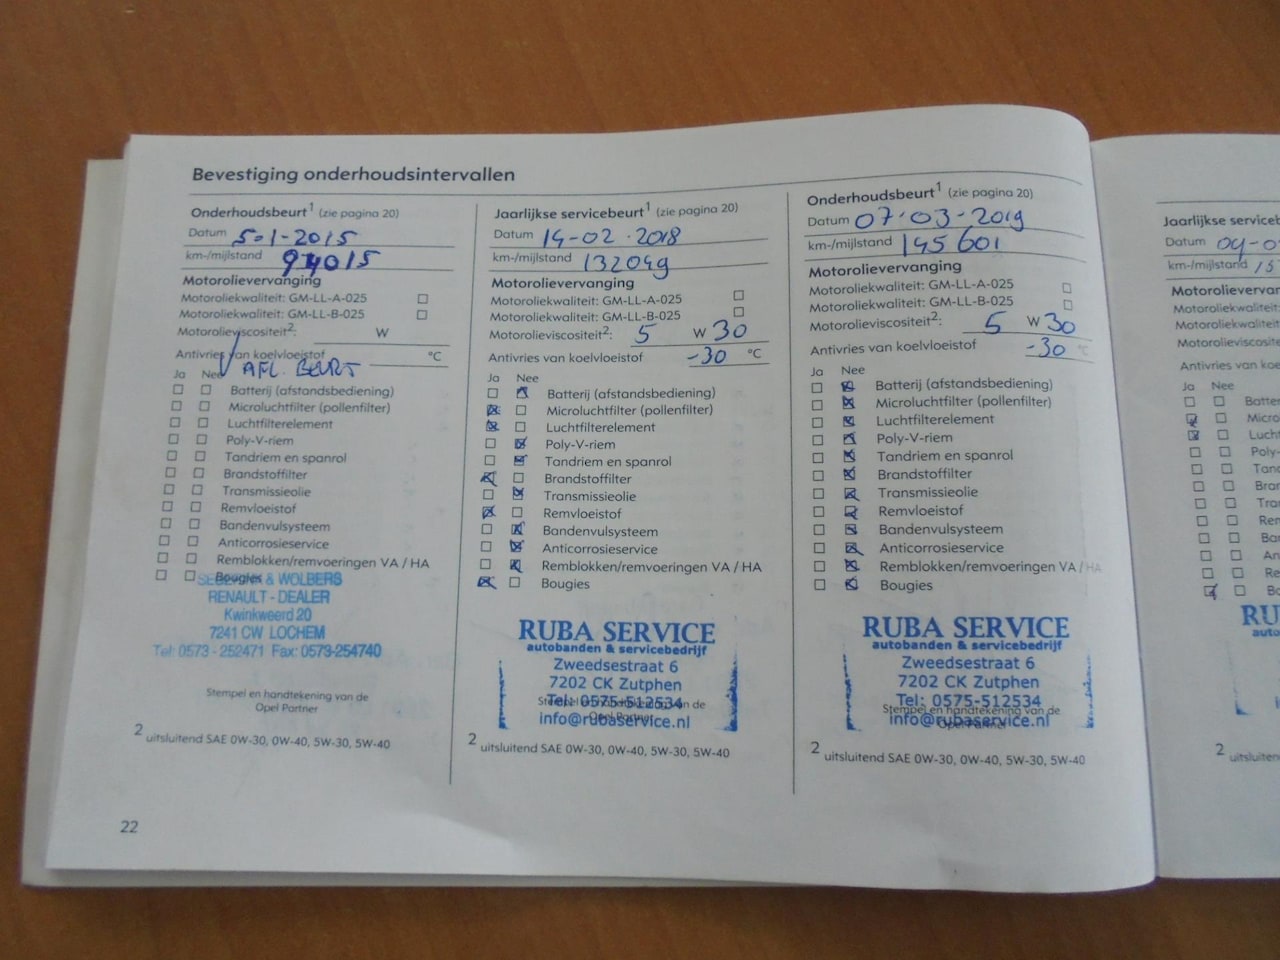 Bevestiging onderhoudsintervallen
Onderhoudsbeurt¹ (zie pagina 20)
Datum 5-1-2015
km-/mijlstand 94015
Motorolievervanging
Motoroliekwaliteit: GM-LL-A-025
Motoroliekwaliteit: GM-LL-B-025
Motorolieviscositeit²: W
Antivries van koelvloeistof °C
AFL. BEURT
Ja Nee
Batterij (afstandsbediening)
Microluchtfilter (pollenfilter)
Luchtfilterelement
Poly-V-riem
Tandriem en spanrol
Brandstoffilter
Transmissieolie
Remvloeistof
Bandenvulsysteem
Anticorrosieservice
Remblokken/remvoeringen VA / HA
Bougies
& WOLBERS
RENAULT - DEALER
Kwinkweerd 20
7241 CW LOCHEM
Tel: 0573 - 252471 Fax: 0573-254740
Stempel en handtekening van de
Opel Partner
2 uitsluitend SAE 0W-30, 0W-40, 5W-30, 5W-40
22
Jaarlijkse servicebeurt¹ (zie pagina 20)
Datum 14-02-2018
km-/mijlstand 132049
Motorolievervanging
Motoroliekwaliteit: GM-LL-A-025
Motoroliekwaliteit: GM-LL-B-025
Motorolieviscositeit²: 5 W 30
Antivries van koelvloeistof -30 °C
Ja Nee
Batterij (afstandsbediening)
Microluchtfilter (pollenfilter)
Luchtfilterelement
Poly-V-riem
Tandriem en spanrol
Brandstoffilter
Transmissieolie
Remvloeistof
Bandenvulsysteem
Anticorrosieservice
Remblokken/remvoeringen VA / HA
Bougies
RUBA SERVICE
autobanden & servicebedrijf
Zweedsestraat 6
7202 CK Zutphen
Tel: 0575-512534
info@rubaservice.nl
2 uitsluitend SAE 0W-30, 0W-40, 5W-30, 5W-40
Onderhoudsbeurt¹ (zie pagina 20)
Datum 07-03-2019
km-/mijlstand 145601
Motorolievervanging
Motoroliekwaliteit: GM-LL-A-025
Motoroliekwaliteit: GM-LL-B-025
Motorolieviscositeit²: 5 W 30
Antivries van koelvloeistof -30 °C
Ja Nee
Batterij (afstandsbediening)
Microluchtfilter (pollenfilter)
Luchtfilterelement
Poly-V-riem
Tandriem en spanrol
Brandstoffilter
Transmissieolie
Remvloeistof
Bandenvulsysteem
Anticorrosieservice
Remblokken/remvoeringen VA / HA
Bougies
RUBA SERVICE
autobanden & servicebedrijf
Zweedsestraat 6
7202 CK Zutphen
Tel: 0575-512534
Stempel en handtekening van de
info@rubaservice.nl
2 uitsluitend SAE 0W-30, 0W-40, 5W-30, 5W-40
Jaarlijkse
Datum
km-/mijlstand
Ja Nee
2